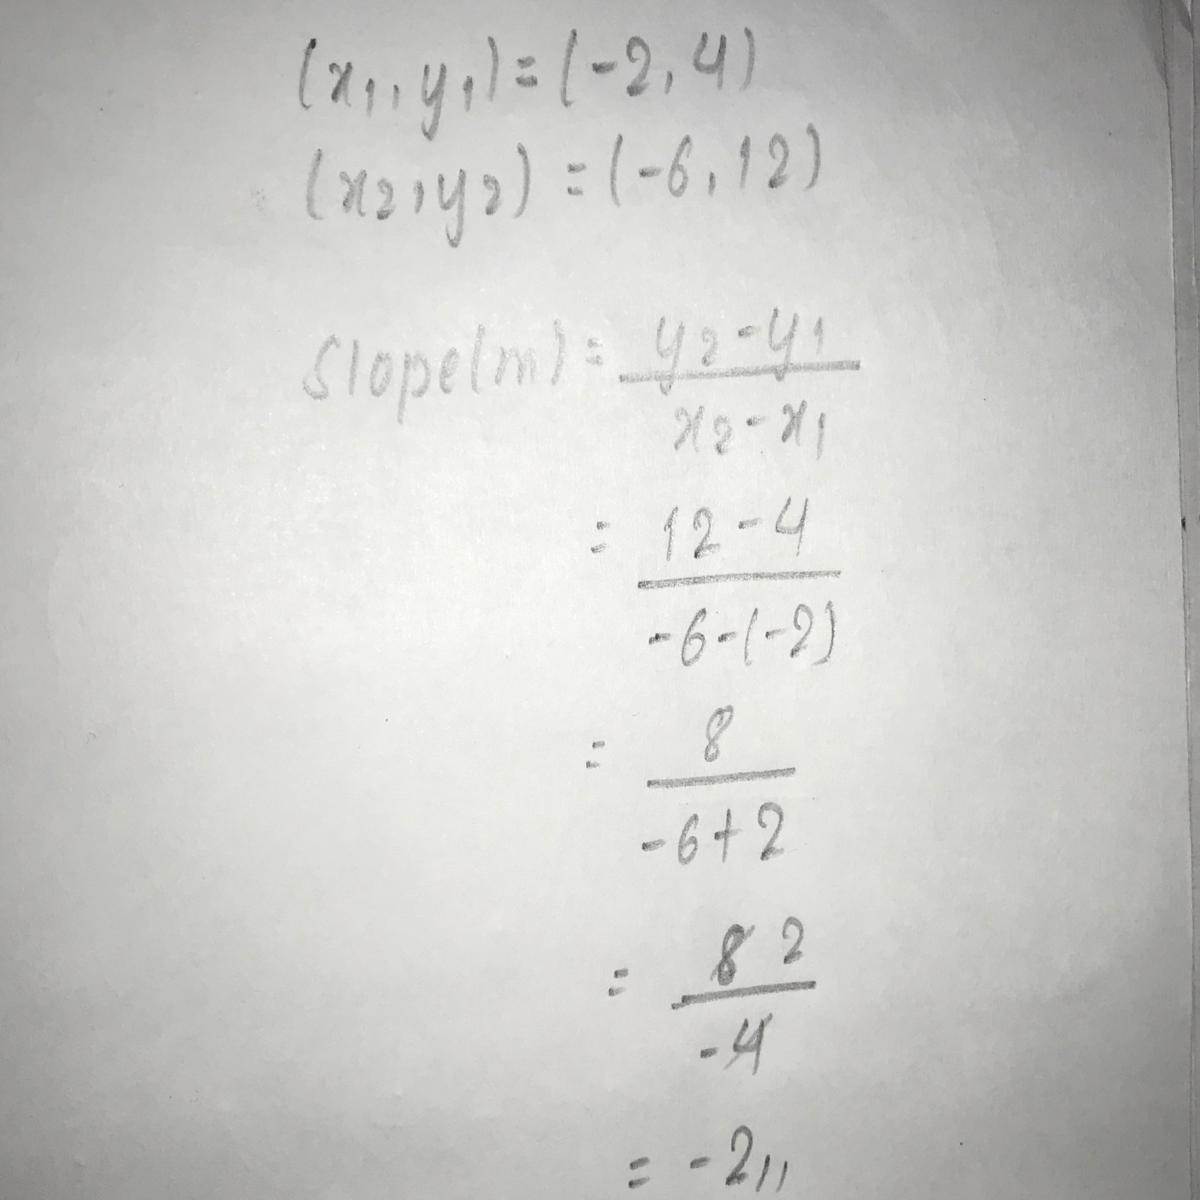 (x₁, y₁) = (-2, 4)
(x₂, y₂) = (-6, 12)
Slope(m) = y₂-y₁
x₂-x₁
= 12-4
-6-(-2)
= 8
-6+2
= 8 2
-4
= -2,,